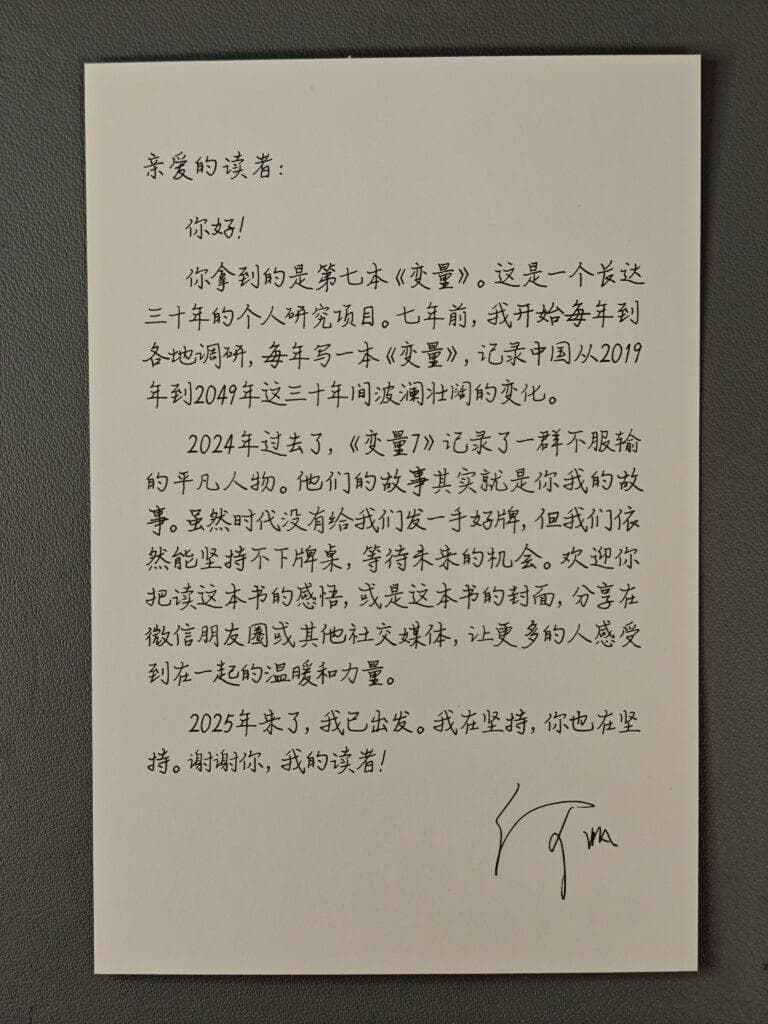 亲爱的读者：
你好！
你拿到的是第七本《变量》。这是一个长达
三十年的个人研究项目。七年前，我开始每年到
各地调研，每年写一本《变量》，记录中国从2019
年到2049年这三十年间波澜壮阔的变化。
2024年过去了，《变量7》记录了一群不服输
的平凡人物。他们的故事其实就是你我的故
事。虽然时代没有给我们发一手好牌，但我们依
然能坚持不下牌桌，等待未来的机会。欢迎你
把读这本书的感悟，或是这本书的封面，分享在
微信朋友圈或其他社交媒体，让更多的人感受
到在一起的温暖和力量。
2025年来了，我已出发。我在坚持，你也在坚
持。谢谢你，我的读者！
何帆